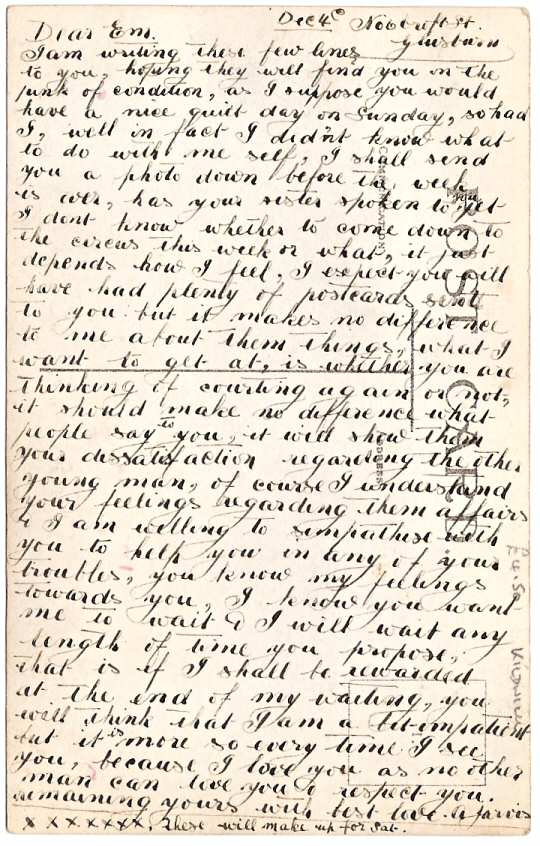 Dec 4th No 6 Croft St.
Dear Em. Glusburn
I am writing these few lines
to you, hoping they will find you in the
pink of condition, as I suppose you would
have a nice quilt day on Sunday, so had
I, well in fact I didn't know what
to do with me self, I shall send
you a photo down before the week
is over, has your sister spoken to you yet
I dont know whether to come down to
the circus this week or what, it just
depends how I feel, I expect you will
have had plenty of postcards sent
to you but it makes no difference
to me about them things, what I
want to get at, is whether you are
thinking of courting again or not,
it should make no difference what
people say to you, it will show them
your dissatisfaction regarding the other
young man, of course I understand
your feelings regarding them affairs
& I am willing to simpathise with
you to help you in any of your
troubles, you know my feelings
towards you, I know you want
me to wait & I will wait any
length of time you propose,
that is if I shall be rewarded
at the end of my waiting, you
will think that I am a bit impatient
but it is more so every time I see
you, because I love you as no other
man can love you & respect you.
remaining yours with best love Jarvis
x x x x x x x, these will make up for Sat.
POST CARD
COMMUNICATION
ADDRESS
£4.50